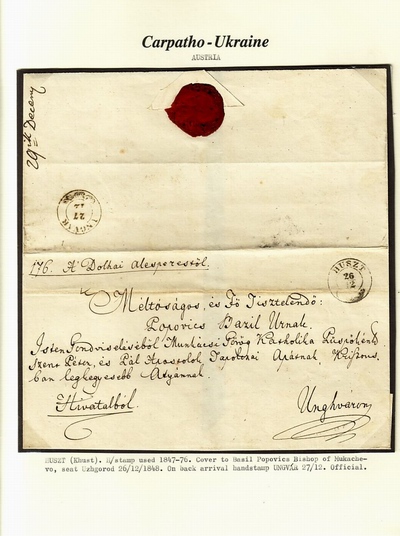 Carpatho-Ukraine
AUSTRIA
29ik Decem
UNGVÁR
27
12
176. A Dolhai alesperestől.
HUSZT
26
12
Méltóságos, és Fő Tisztelendő:
Popovics Bazil Urnak.
Isten Gondviseléséből Munkácsi Görög Katholika Püspöknek
Szent Péter, és Pál Apostolok Tapolczai Apátnak,
ban legkegyesebb Atyámnak.
Hivatalból.
Unghváron
HUSZT (Khust). H/stamp used 1847-76. Cover to Basil Popovics Bishop of Mukache-
vo, sent Uzhgorod 26/12/1848. On back arrival handstamp UNGVÁR 27/12. Official.